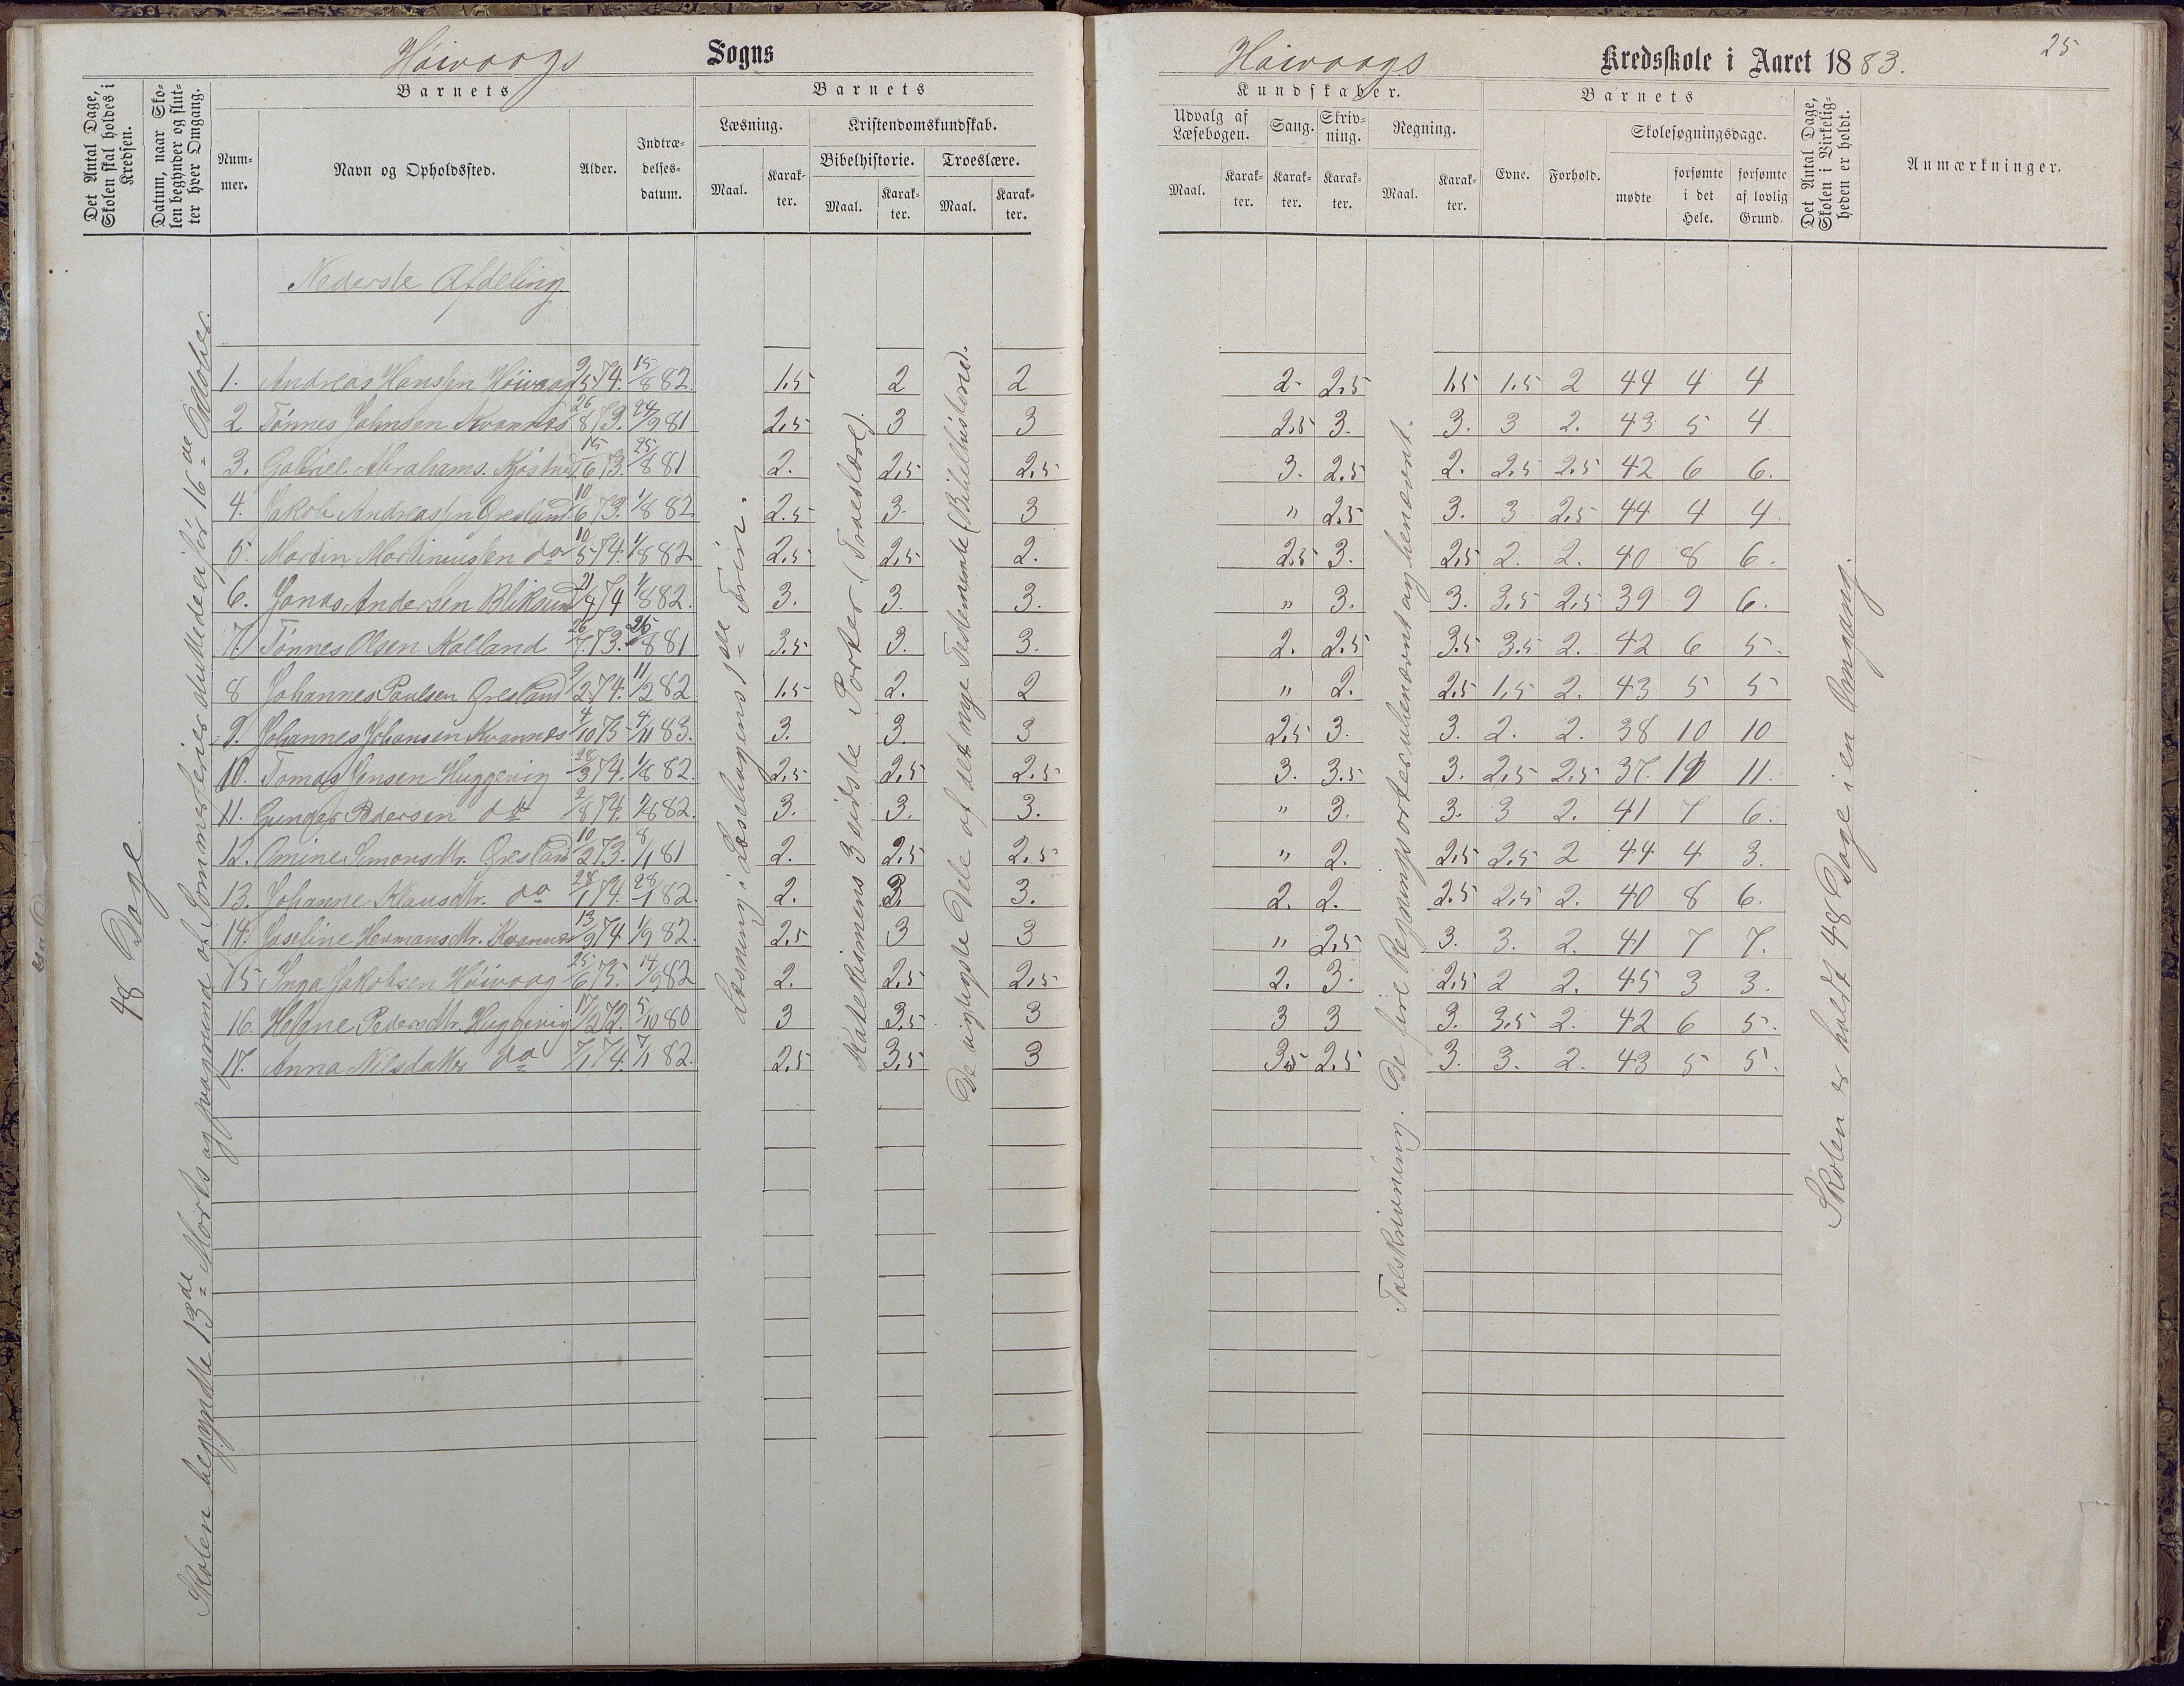 Høivaags Sogns
Høivaags Kredsskole i Aaret 1883.
25
Det Antal Dage, Skolen skal holdes i Kredsen.
Datum, naar Skolen begynder og slutter hver Omgang.
Nummer.
Barnets
Navn og Opholdssted.
Alder.
Indtrædelsesdatum.
Barnets
Læsning.
Maal.
Karakter.
Kristendomskundskab.
Bibelhistorie.
Maal.
Karakter.
Troeslære.
Maal.
Karakter.
Kundskaber.
Udvalg af Læsebogen.
Maal.
Karakter.
Sang.
Karakter.
Skrivning.
Karakter.
Regning.
Maal.
Karakter.
Barnets
Evne.
Forhold.
Skolesøgningsdage.
mødte
forsømte i det Hele.
forsømte af lovlig Grund.
Det Antal Dage, Skolen i Virkeligheden er holdt.
Anmærkninger.
48 Dage.
Skolen begyndte 13de Marts og paagrund af Sommerferier sluttede ei før 16de Oktober.
Nederste Afdeling.
Læsning i Læsebogens 1ste Trin.
Katekismens 3 sidste Parter (Troeslære).
De vigtigste Dele af det nye Testemente (Bibelhistorie).
Talskrivning. De fire Regningsarter ubenævnt og benævnt.
Skolen er holdt 48 Dage i en Omgang.
1. Andreas Hansen Høivaag 9/5 74. 15/8 82. 1.5 2 2 2 2.5 1.5 1.5 2 44 4 4
2 Tønnes Johnsen Kvannes 26/8 73. 24/9 81 2.5 3 3 2.5 3. 3. 3 2. 43 5 4
3. Gabriel Abrahams. 15/6 73. 25/8 81 2. 2.5 2.5 3. 2.5 2. 2.5 2.5 42 6 6.
4. Jakob Andreassen Øresland 10/6 73. 1/8 82 2.5 3. 3 " 2.5 3. 3 2.5 44 4 4.
5. Martin Martinussen do 10/5 74. 1/8 82 2.5 2.5 2. 2.5 3. 2.5 2. 2. 40 8 6.
6. Jonas Andersen Bliksund 21/4 74 1/8 82. 3. 3. 3. " 3. 3. 3.5 2.5 39 9 6.
7. Tønnes Olsen Kalland 26/7 73. 25/8 81 3.5 3. 3. 2. 2.5 3.5 3.5 2. 42 6 5.
8 Johannes Paulsen Øresland 9/2 74. 11/2 82 1.5 2. 2 " 2. 2.5 1.5 2. 43 5 5
9. Johannes Johansen Kvannes 4/10 75 4/11 83. 3. 3. 3 2.5 3. 3. 2. 2. 38 10 10
10. Tomas Jensen Huggevig 28/3 74. 1/8 82. 2.5 2.5 2.5 3. 3.5 3. 2.5 2.5 37. 11 11.
11. Gunder Pedersen do 2/8 74. 1/8 82. 3. 3. 3. " 3. 3. 3 2. 41 7 6.
12. Amine Simonsdtr. Øresland 10/2 73. 8/1 81 2. 2.5 2.5 " 2. 2.5 2.5 2 44 4 3.
13. Johanne Klausdtr. do 28/1 74. 28/1 82. 2. 3. 3. 2. 2. 2.5 2.5 2. 40 8 6.
14. Josefine Hermansdtr. Kvannes 13/9 74. 1/9 82. 2.5 3 3 " 2.5 3. 3. 2. 41 7 7.
15 Inga Jakobsen Høivaag 25/6 75. 14/9 82 2. 2.5 2.5 2. 3. 2.5 2 2. 45 3 3.
16. Helene Pedersdtr. Huggevig 17/2 72. 5/10 80 3 3.5 3 3 3 3. 3.5 2. 42 6 5.
17. Anna Nilsdatter do 7/1 74. 7/1 82. 2.5 3.5 3 3.5 2.5 3. 3. 2. 43 5 5.